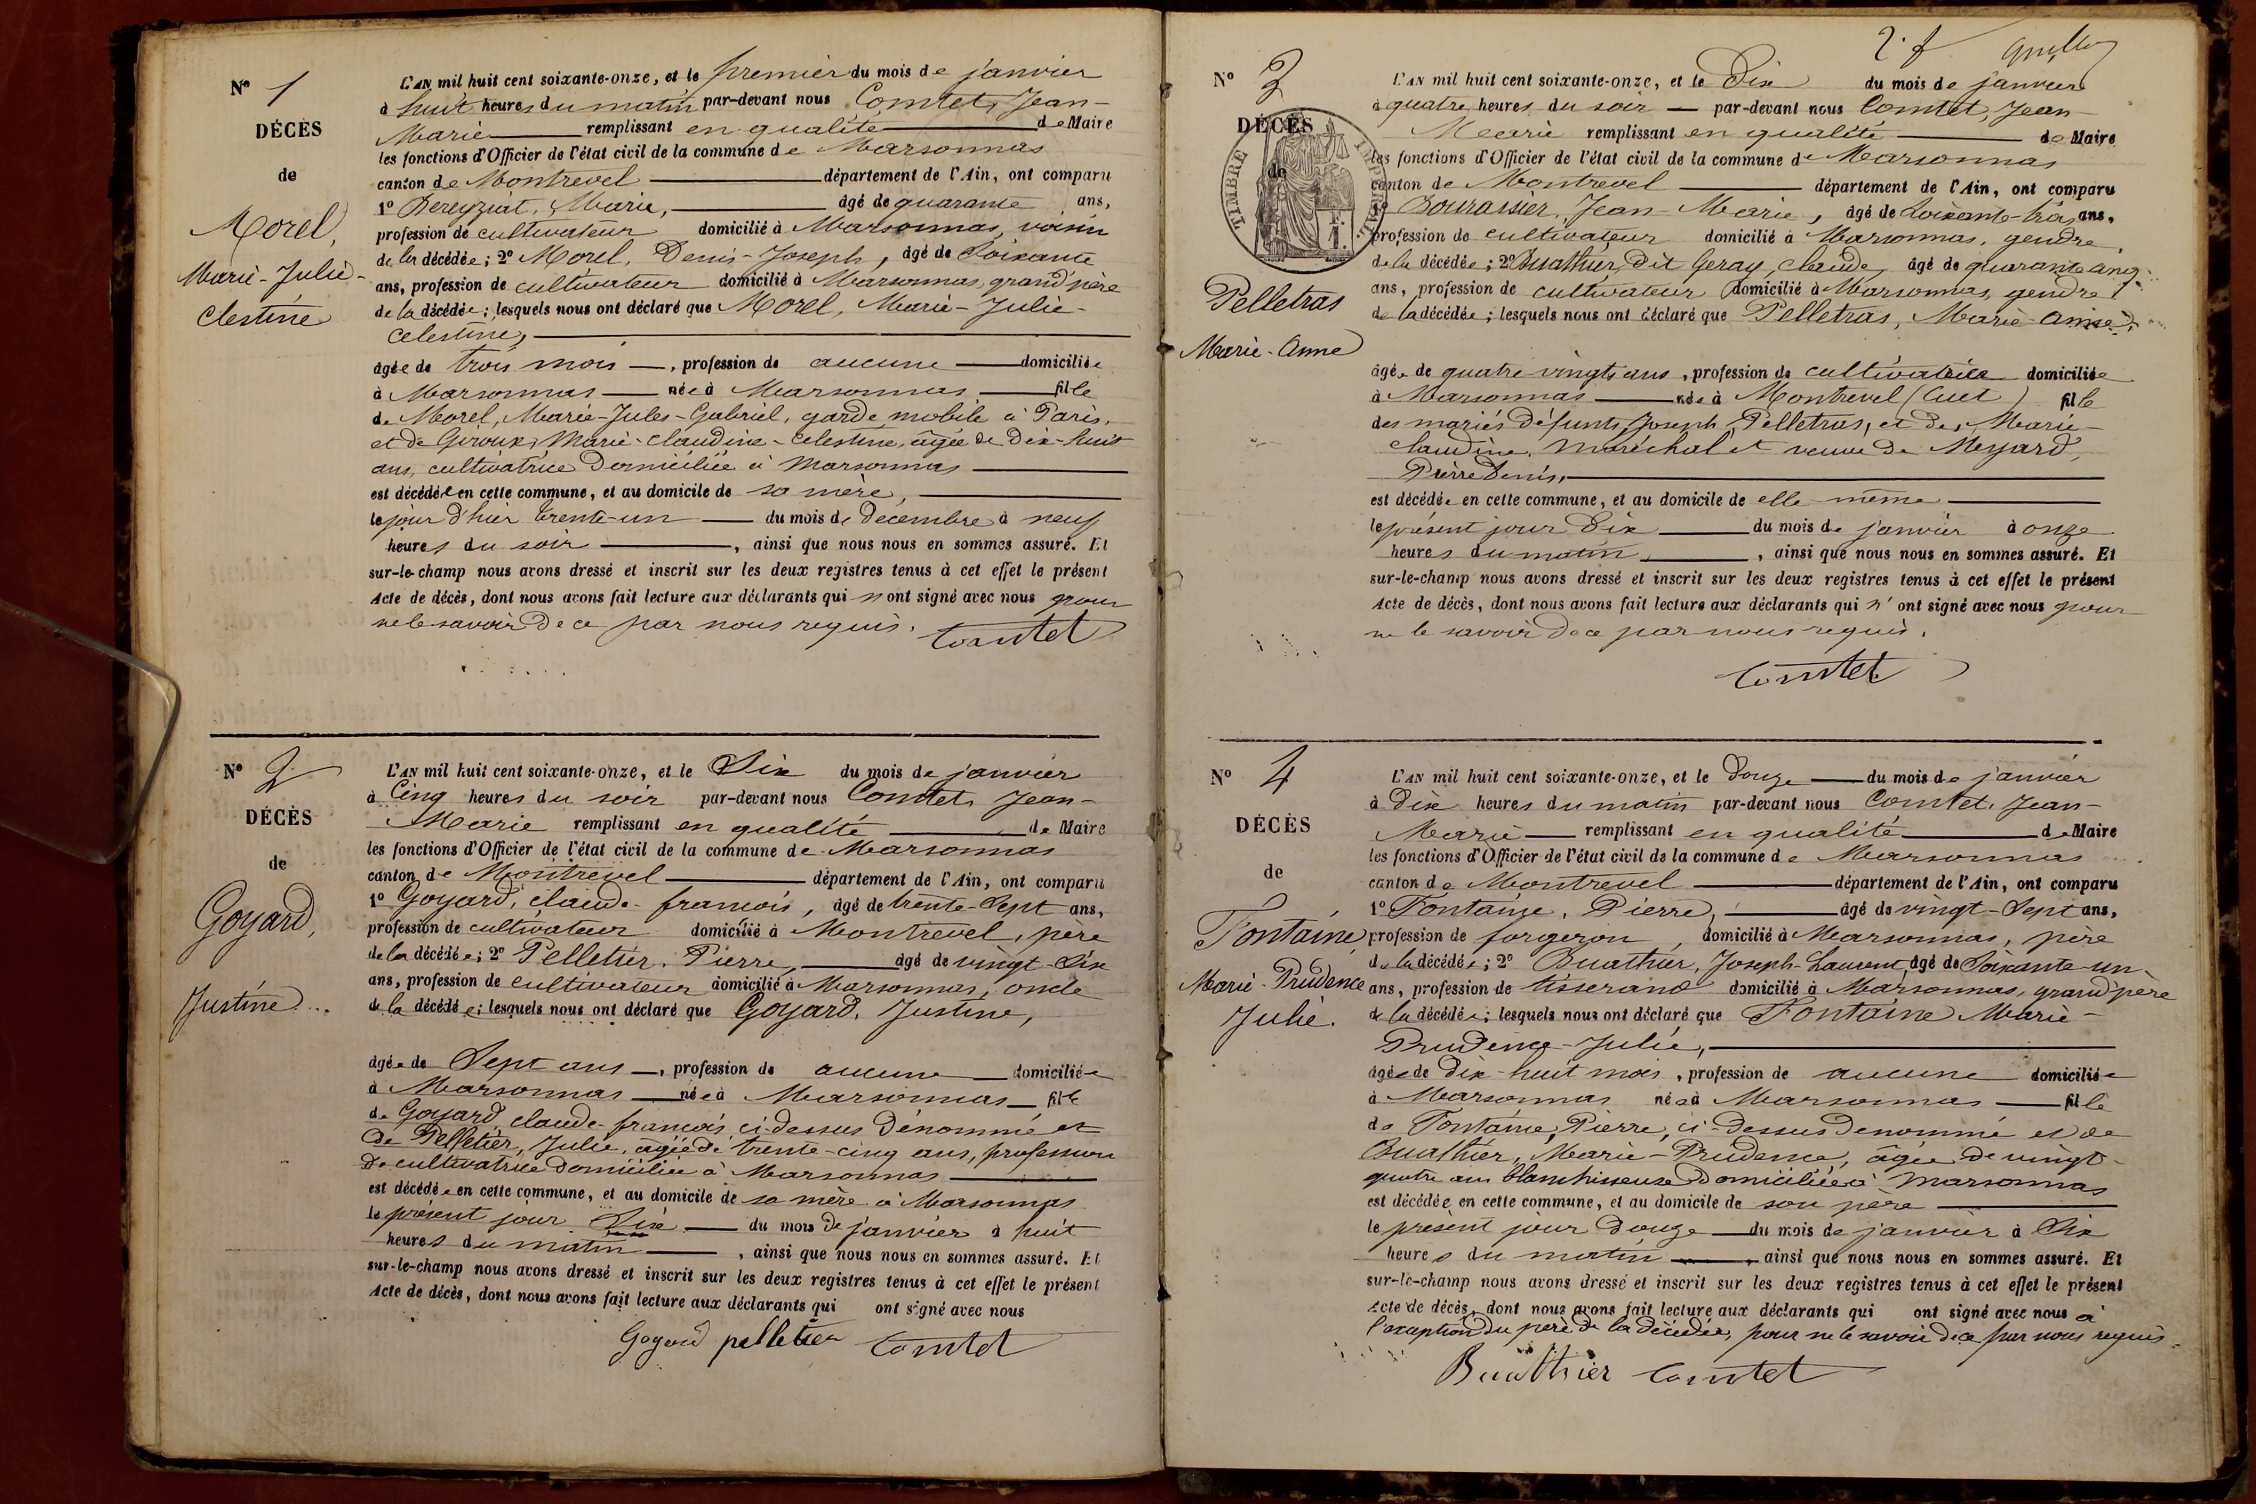 N° 1
DÉCÈS
de
Morel,
Marie-Julie-
Clestine
L'AN mil huit cent soixante-onze, et le premier du mois de janvier
à huit heures du matin par-devant nous Comtet, Jean-
Marie remplissant en qualité de Maire
les fonctions d'Officier de l'état civil de la commune de Marsonnas
canton de Montrevel département de l'Ain, ont comparu
1° Pereyziat, Marie, âgé de quarante ans,
profession de cultivateur domicilié à Marsonnas, voisin
de la décédée; 2° Morel, Denis-Joseph, âgé de Soixante
ans, profession de cultivateur domicilié à Marsonnas, grand'père
de la décédée; lesquels nous ont déclaré que Morel, Marie-Julie-
Celestine,
âgée de trois mois, profession de aucune domiciliée
à Marsonnas née à Marsonnas fille
de Morel, Marie-Jules-Gabriel, garde mobile à Paris,
et de Giroux, Marie-Claudine-Celestine, âgée de Dix-huit
ans, cultivatrice Domiciliée à Marsonnas
est décédée en cette commune, et au domicile de sa mère,
le jour d'hier trente-un du mois de décembre à neuf
heures du soir, ainsi que nous nous en sommes assuré. Et
sur-le-champ nous avons dressé et inscrit sur les deux registres tenus à cet effet le présent
Acte de décès, dont nous avons fait lecture aux déclarants qui n'ont signé avec nous pour
ne le savoir De ce par nous requis. Comtet
N° 2
DÉCÈS
de
Goyard,
Justine
L'AN mil huit cent soixante-onze, et le Six du mois de janvier
à Cinq heures du soir par-devant nous Comtet, Jean-
Marie remplissant en qualité de Maire
les fonctions d'Officier de l'état civil de la commune de Marsonnas
canton de Montrevel département de l'Ain, ont comparu
1° Goyard, claude-francois, âgé de trente-Sept ans,
profession de cultivateur domicilié à Montrevel, père
de la décédée; 2° Pelletier, Pierre, âgé de vingt-Six
ans, profession de cultivateur domicilié à Marsonnas, oncle
de la décédée; lesquels nous ont déclaré que Goyard, Justine,
âgée de Sept ans, profession de aucune domiciliée
à Marsonnas née à Marsonnas fille
de Goyard, claude-francois ci-dessus Dénommé et
De Pelletier, Julie, âgée de trente-cinq ans, profession
De cultivatrice domiciliée à Marsonnas
est décédée en cette commune, et au domicile de sa mère à Marsonnas
le présent jour Six du mois de janvier à huit
heures du matin, ainsi que nous nous en sommes assuré. Et
sur-le-champ nous avons dressé et inscrit sur les deux registres tenus à cet effet le présent
Acte de décès, dont nous avons fait lecture aux déclarants qui ont signé avec nous
Goyard pelletier Comtet
N° 3
DÉCÈS
de
TIMBRE IMPERIAL
Pelletras
Marie-Anne
L'AN mil huit cent soixante-onze, et le Dix du mois de janvier
à quatre heures du soir par-devant nous Comtet, Jean-
Marie remplissant en qualité de Maire
les fonctions d'Officier de l'état civil de la commune de Marsonnas
canton de Montrevel département de l'Ain, ont comparu
1° Bouraisier, Jean-Marie, âgé de Soixante-trois ans,
profession de cultivateur domicilié à Marsonnas, gendre
de la décédée; 2° Buathier, Dit Geray, Claude, âgé de quarante cinq
ans, profession de cultivateur domicilié à Marsonnas, gendre
de la décédée; lesquels nous ont déclaré que Pelletras, Marie-Anne,
âgée de quatre-vingts ans, profession de cultivatrice domiciliée
à Marsonnas née à Montrevel (Cuet) fille
des mariés Défunts, Joseph Pelletras, et de, Marie-
Claudine, Maréchal et veuve de Meyard,
Pierre Denis,
est décédée en cette commune, et au domicile de elle-même
le présent jour Dix du mois de janvier à onze
heures du matin, ainsi que nous nous en sommes assuré. Et
sur-le-champ nous avons dressé et inscrit sur les deux registres tenus à cet effet le présent
Acte de décès, dont nous avons fait lecture aux déclarants qui n'ont signé avec nous pour
ne le savoir De ce par nous requis.
Comtet
N° 4
DÉCÈS
de
Fontaine
Marie-Prudence
Julie.
L'AN mil huit cent soixante-onze, et le Douze du mois de janvier
à Dix heures du matin par-devant nous Comtet, Jean-
Marie remplissant en qualité de Maire
les fonctions d'Officier de l'état civil de la commune de Marsonnas
canton de Montrevel département de l'Ain, ont comparu
1° Fontaine, Pierre, âgé de vingt-Sept ans,
profession de forgeron, domicilié à Marsonnas, père
de la décédée; 2° Buathier, Joseph-Laurent, âgé de Soixante-un
ans, profession de tisserand domicilié à Marsonnas, grand'père
de la décédée; lesquels nous ont déclaré que Fontaine Marie-
Prudence-Julie,
âgée de Dix-huit mois, profession de aucune domiciliée
à Marsonnas née à Marsonnas fille
de Fontaine, Pierre, ci-Dessus Denommé et de
Buathier, Marie-Prudence, âgée De vingt-
quatre ans blanchisseuse Domiciliée à Marsonnas
est décédée en cette commune, et au domicile de son père
le présent jour Douze du mois de janvier à Six
heures du matin, ainsi que nous nous en sommes assuré. Et
sur-le-champ nous avons dressé et inscrit sur les deux registres tenus à cet effet le présent
Acte de décès, dont nous avons fait lecture aux déclarants qui ont signé avec nous à
l'exception du père De la décédée, pour ne le savoir De ce par nous requis.
Buathier Comtet